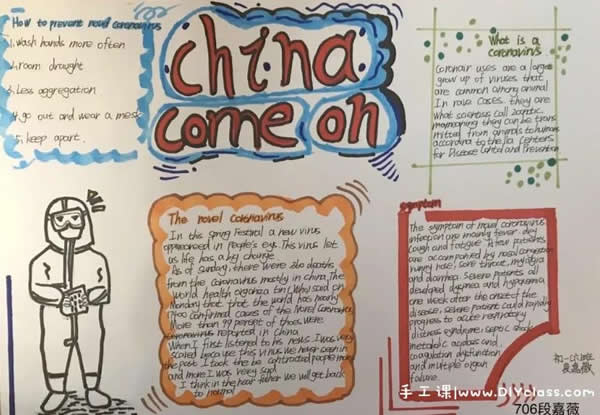 How to prevent novel coronavirus
1. wash hands more often
2. room draught
3. Less aggregation
4. go out and wear a mask
5. keep apart.
china
come on
What is a
coronavirus
Coronair uses are a large
grow up of viruses that
are common among animal
In rare cases. they are
what scientists call zoonotic
meaning they can be trans
mitted from animals to humans
according to the centers
for Disease Control and Prevention
The novel coronavirus
In this spring Festival a new virus
appearanced in people's eyes. This virus let
us life has a big change.
As of Sunday, there were 360 deaths
from the coronavirus mostly in china. The
World health organiza tion said on
Monday that that the world has nearly
17400 confirmed cases of the Novel coronavirus
More than 99 percent of those were
coronavirus reported in china
When I first listened to his news. I was very
scared because this virus we never seen in
the past. I took the be contracted people more
and more I was very sad
I think in the near further we will get back
to normal
symptom
The symptom of novel coronavirus
infection are mainly fever. dry
cough and fatigue. A few patients
are accompanied by nasal congestion
runny nose, sore throat, myalgia
and diarrhea. Severe patients all
developed dyspnea and hypoxemia
one week after the onset of the
disease, severe patient could rapidly
progress to acute respiratory
distress syndrome, septic shock
metabolic acidosis and
coagulation dysfunction
and multiple organ
failure
初一
段嘉薇
手工课|www.DIYclass.com
706段嘉薇